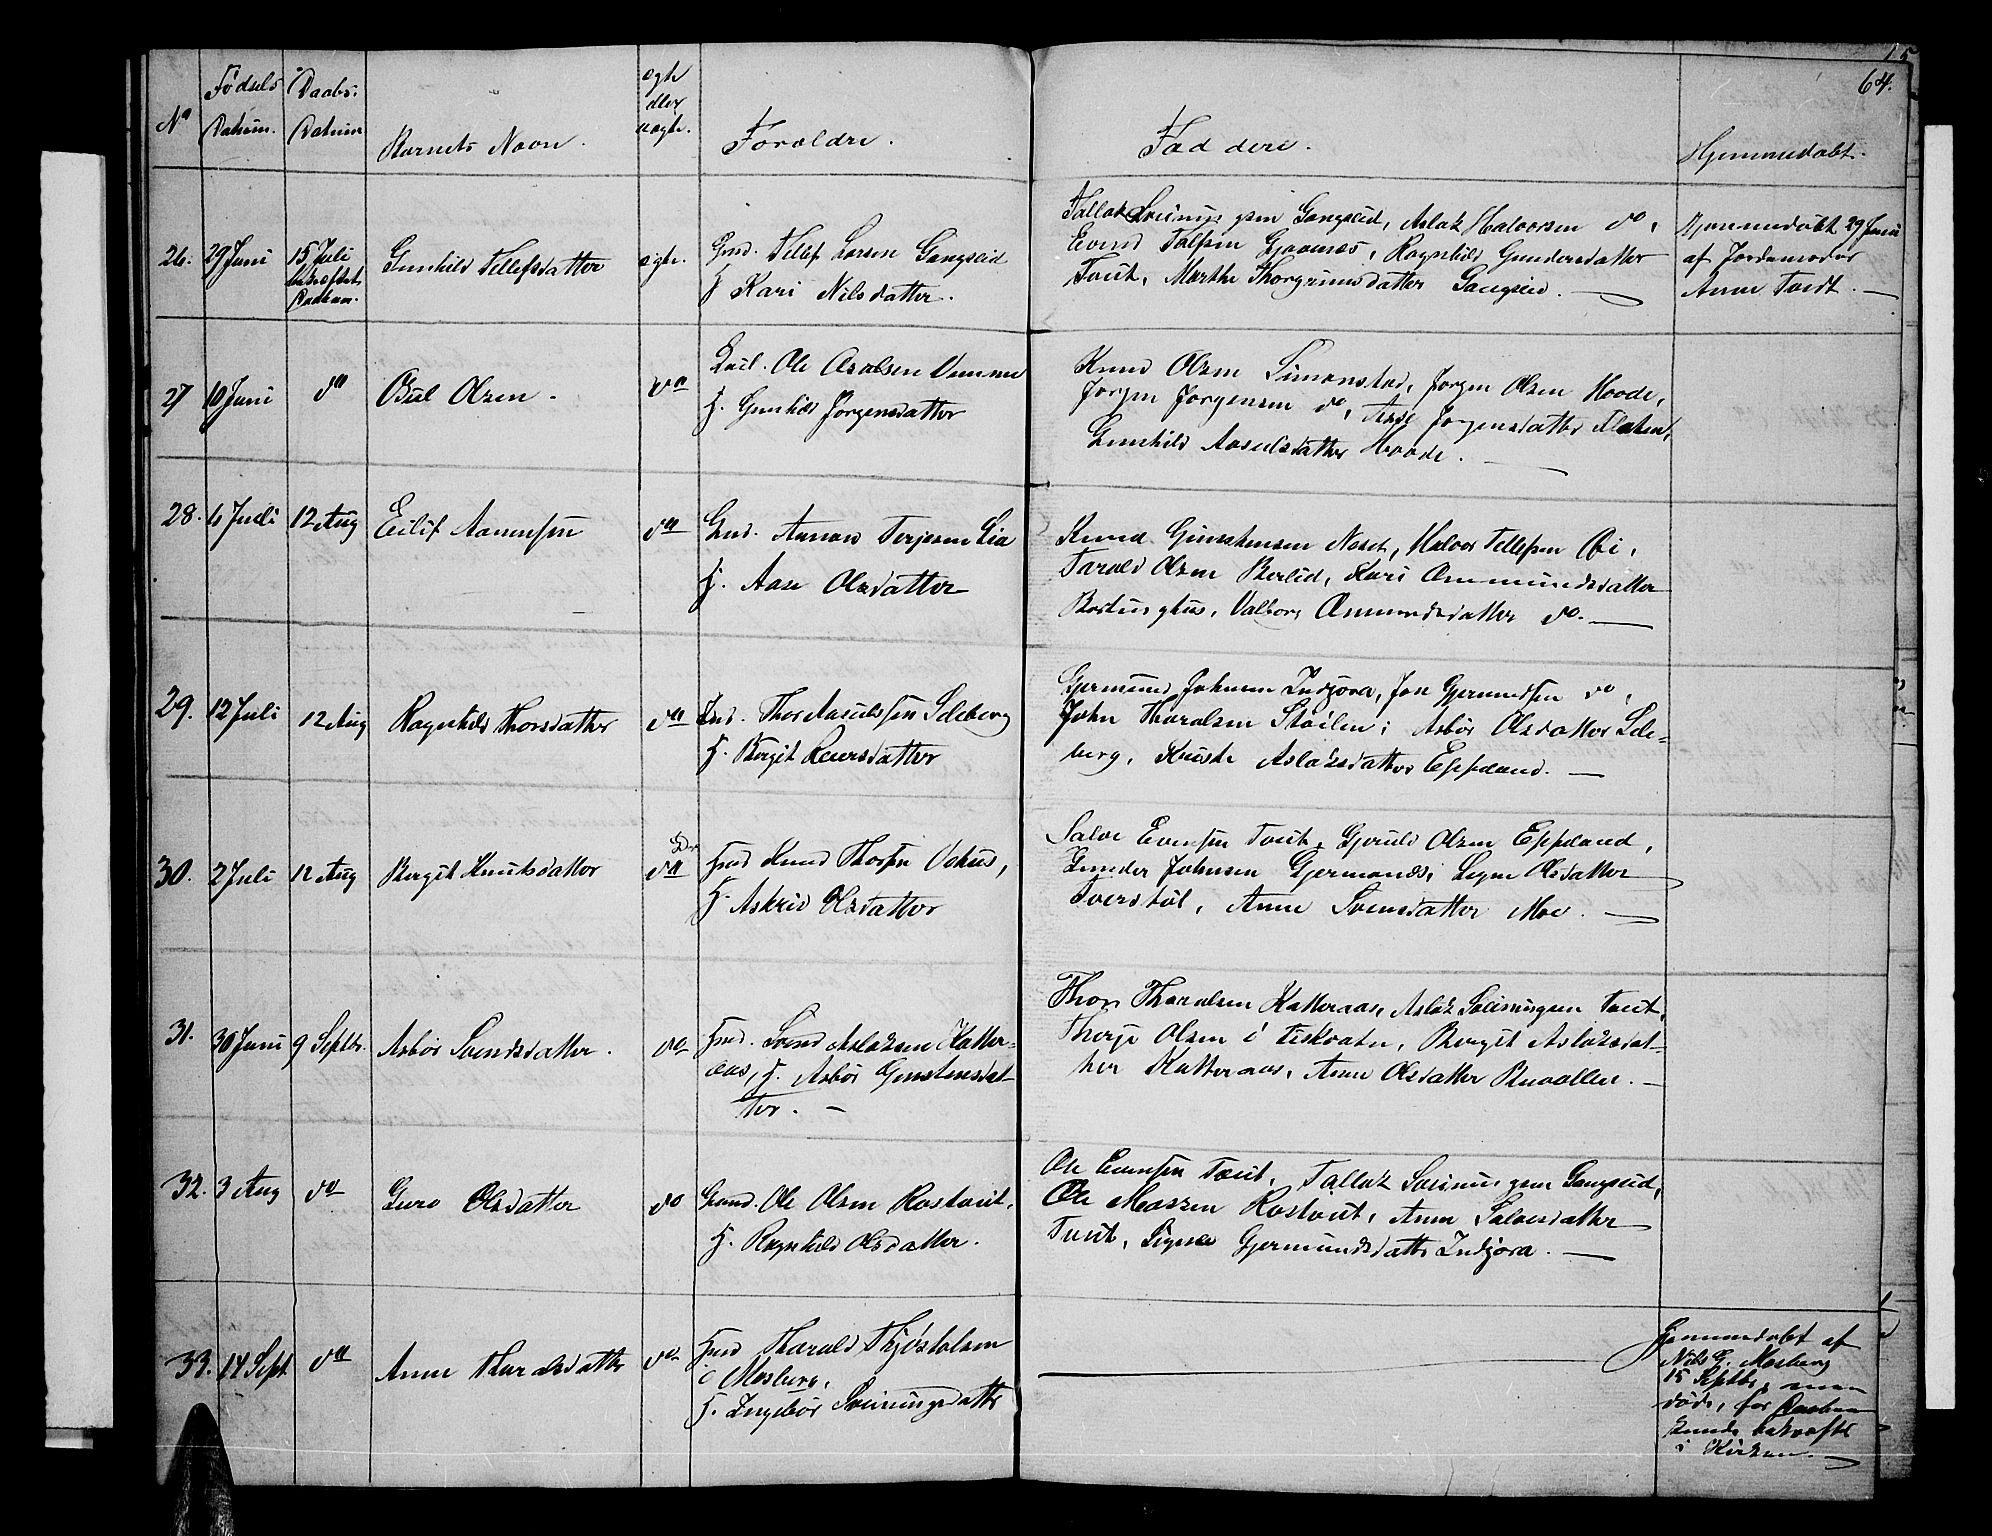 15
64.
No
Fødsels
Datum.
Daabs-
Datum
Barnets Navn.
ægte
eller
uægte.
Forældre.
Faddere.
Hjemmedøbt.
26. 29 Juni
15 Juli
bekræftet
Gunhild Tellefsdatter
ægte.
Gmd. Tellef Larsen Gangseid
H. Kari Nilsdatter.
Tallak Sveinungsen Gangseid, Aslak Halvorsen do,
Evind Gjevnæs, Ragnhild Gundersdatter
Tveit, Marthe Thorgrimsdatter Gangseid.
Hjemmedøbt 29 Juni
af Jordemoder
Anne Tveit.
27 10 Juni do
Olsen.
do
Ole
H. Gunhild Jørgensdatter
Knud Olsen Simonstad, Jørgen Olsen Hovde,
Jørgen Jørgensen do, Jørgensdatter Flaten,
Gunhild Aasulsdatter Hovde.
28. 6 Juli 12 Aug
Eilif Aanensen
do
Gmd. Aanon Terjesen Lia
H. Aase Olsdatter
Knud Gunstensen Næset, Halvor Tellefsen
Tarald Olsen Berlid, Kari Ommundsdatter
Valborg Ommundsdatter do.
29. 12 Juli 12 Aug
Ragnhild Thorsdatter
do
Gmd. Thor Aasulsen Seleberg
H. Birgit
Gjermund Johnsen Indjora, Jon Gjermundsen do,
John Tharalsen Støilen, Asbør Olsdatter Sele-
berg, Aslaksdatter Eppeland.
30. 2 Juli 12 Aug
Bergit Knutsdatter
do
Gmd Knud Thorsen
H. Astrid Olsdatter
Salve Evensen Tveit, Gjeruld Olsen Eppeland,
Gunder Johnsen Gjermanæs, Signe Olsdatter
Tverstøl, Anne Svensdatter Moe.
31. 30 Juni 9 Septbr.
Asbør Svendsdatter.
do
Gmd. Svend Aslaksen Katter-
aas, H. Asbør Gunstensdat-
ter.
Thor Tharalsen Katteraas, Aslak Sveinungsen Tveit,
Therje Olsen i Fiskvatn, Bergit Aslaksdat-
ter Katteraas, Anne Olsdatter
32. 3 Aug do
Guro Olsdatter
do
Gmd. Ole Olsen Rostveit.
H. Ragnhild Olsdatter.
Ole Evensen Tveit, Tallak Sveinungsen Gangseid,
Ole Rostveit, Anne Salvesdatter
Tveit, Signe Gjermundsdatter Indjora.
33. 14 Sept do
Anne Tharalsdatter
do
Gmd Tharald Thjøstolsen
i Mosberg,
H. Ingebør Sveinungsdatter
Hjemmedøbt af
Nils G. Mosberg
15 Septbr, men
døde, før Daaben
kunde bekræftes
i Kirken.